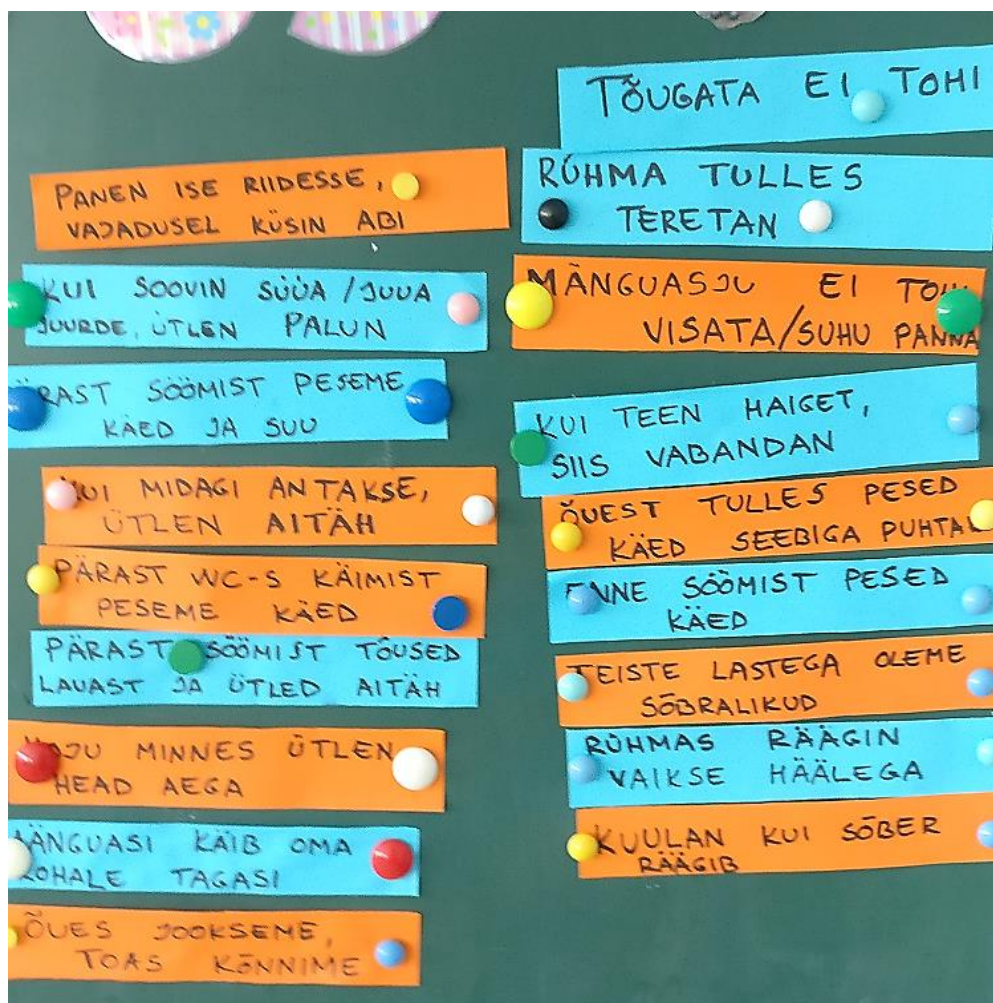 PANEN ISE RIIDESSE,
VAJADUSEL KÜSIN ABI
KUI SOOVIN SÜÜA / JUUA
JUURDE, ÜTLEN PALUN
PÄRAST SÖÖMIST PESEME
KÄED JA SUU
KUI MIDAGI ANTAKSE,
ÜTLEN AITÄH
PÄRAST WC-S KÄIMIST
PESEME KÄED
PÄRAST SÖÖMIST TÕUSED
LAUAST JA ÜTLED AITÄH
KOJU MINNES ÜTLEN
HEAD AEGA
MÄNGUASI KÄIB OMA
KOHALE TAGASI
ÕUES JOOKSEME,
TOAS KÕNNIME
TÕUGATA EI TOHI
RÜHMA TULLES
TERETAN
MÄNGUASJU EI TOHI
VISATA/SUHU PANNA
KUI TEEN HAIGET,
SIIS VABANDAN
ÕUEST TULLES PESED
KÄED SEEBIGA PUHTAKS
ENNE SÖÖMIST PESED
KÄED
TEISTE LASTEGA OLEME
SÕBRALIKUD
RÜHMAS RÄÄGIN
VAIKSE HÄÄLEGA
KUULAN KUI SÕBER
RÄÄGIB